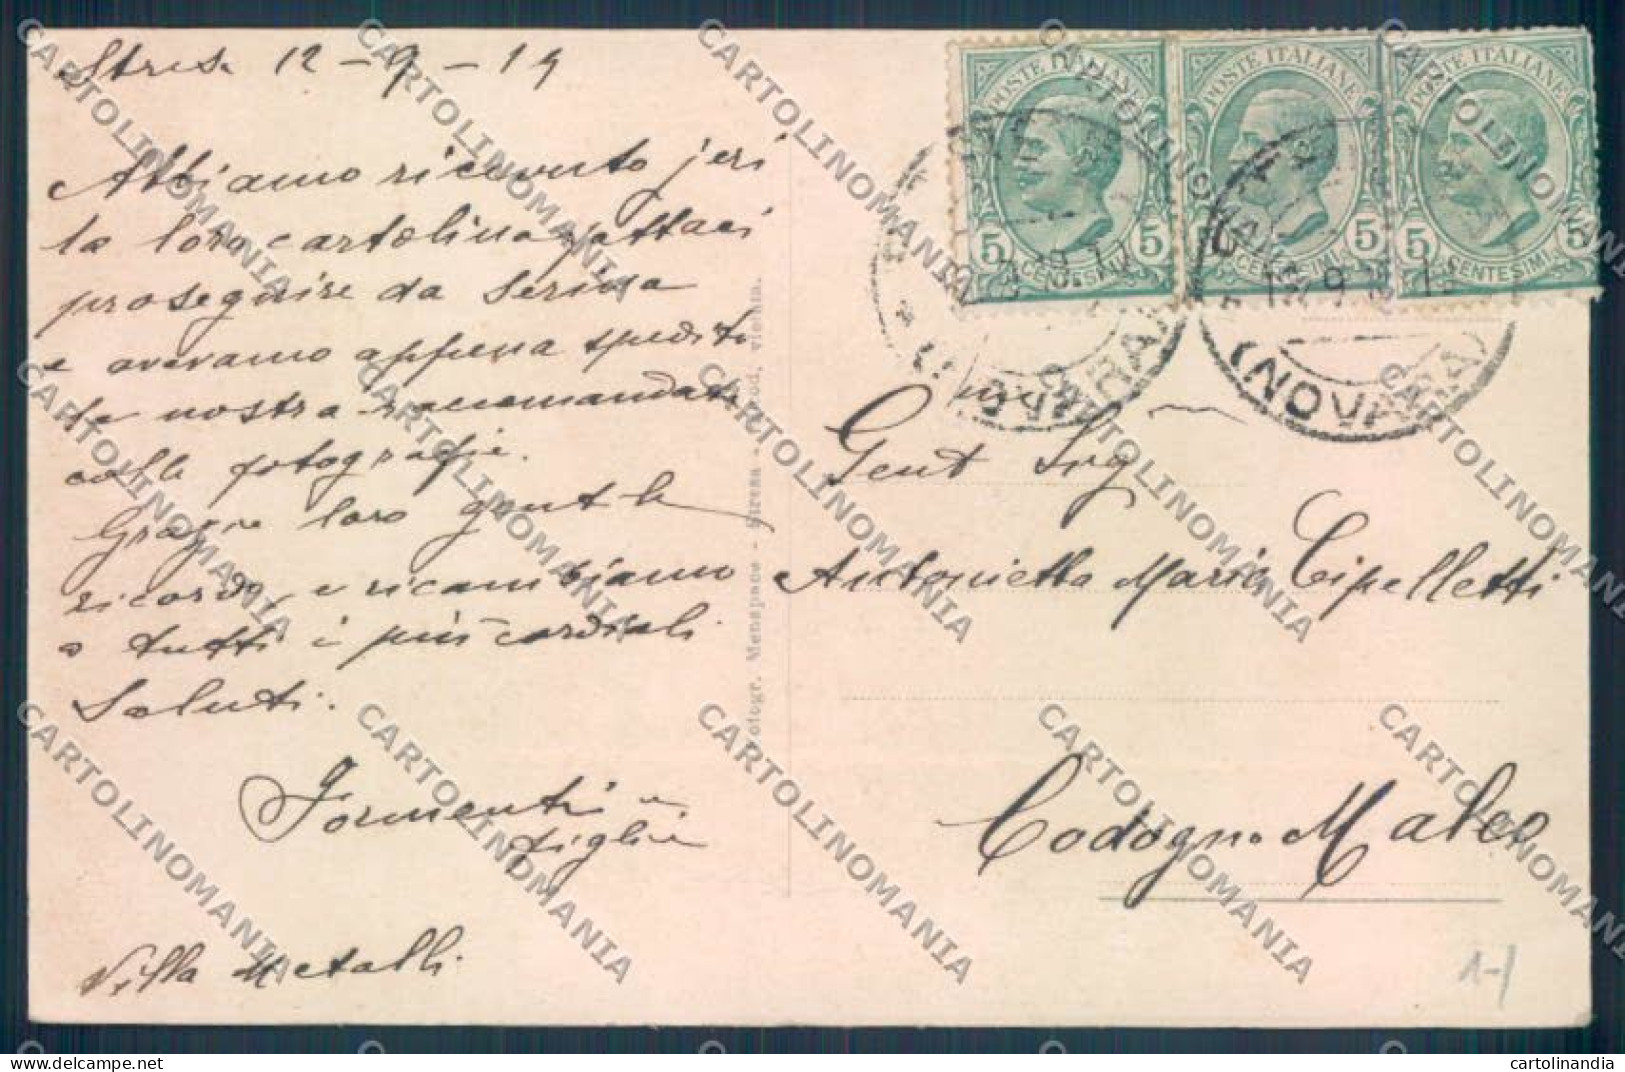 Stresa 12-9-19
Abbiamo ricevuto jeri
la loro cartolina
proseguire da Serina
e avevamo appena spedito
la nostra raccomandata
colle fotografie.
Grazie loro gentile
ricordo, e ricambiamo
a tutti i più cordiali
Saluti.
Formenti e
figlie
Villa Metalli
Fotogr. Menapace - Stresa - vietata.
POSTE ITALIANE
5 CENTESIMI 5
POSTE ITALIANE
5 CENTESIMI 5
POSTE ITALIANE
5 CENTESIMI 5
(NOVARA)
(NOVARA)
Gent Sig
Antonietta Maria Cipelletti
Codogno Maleo
1-1
CARTOLINOMANIA
cartolinandia
delcampe.net